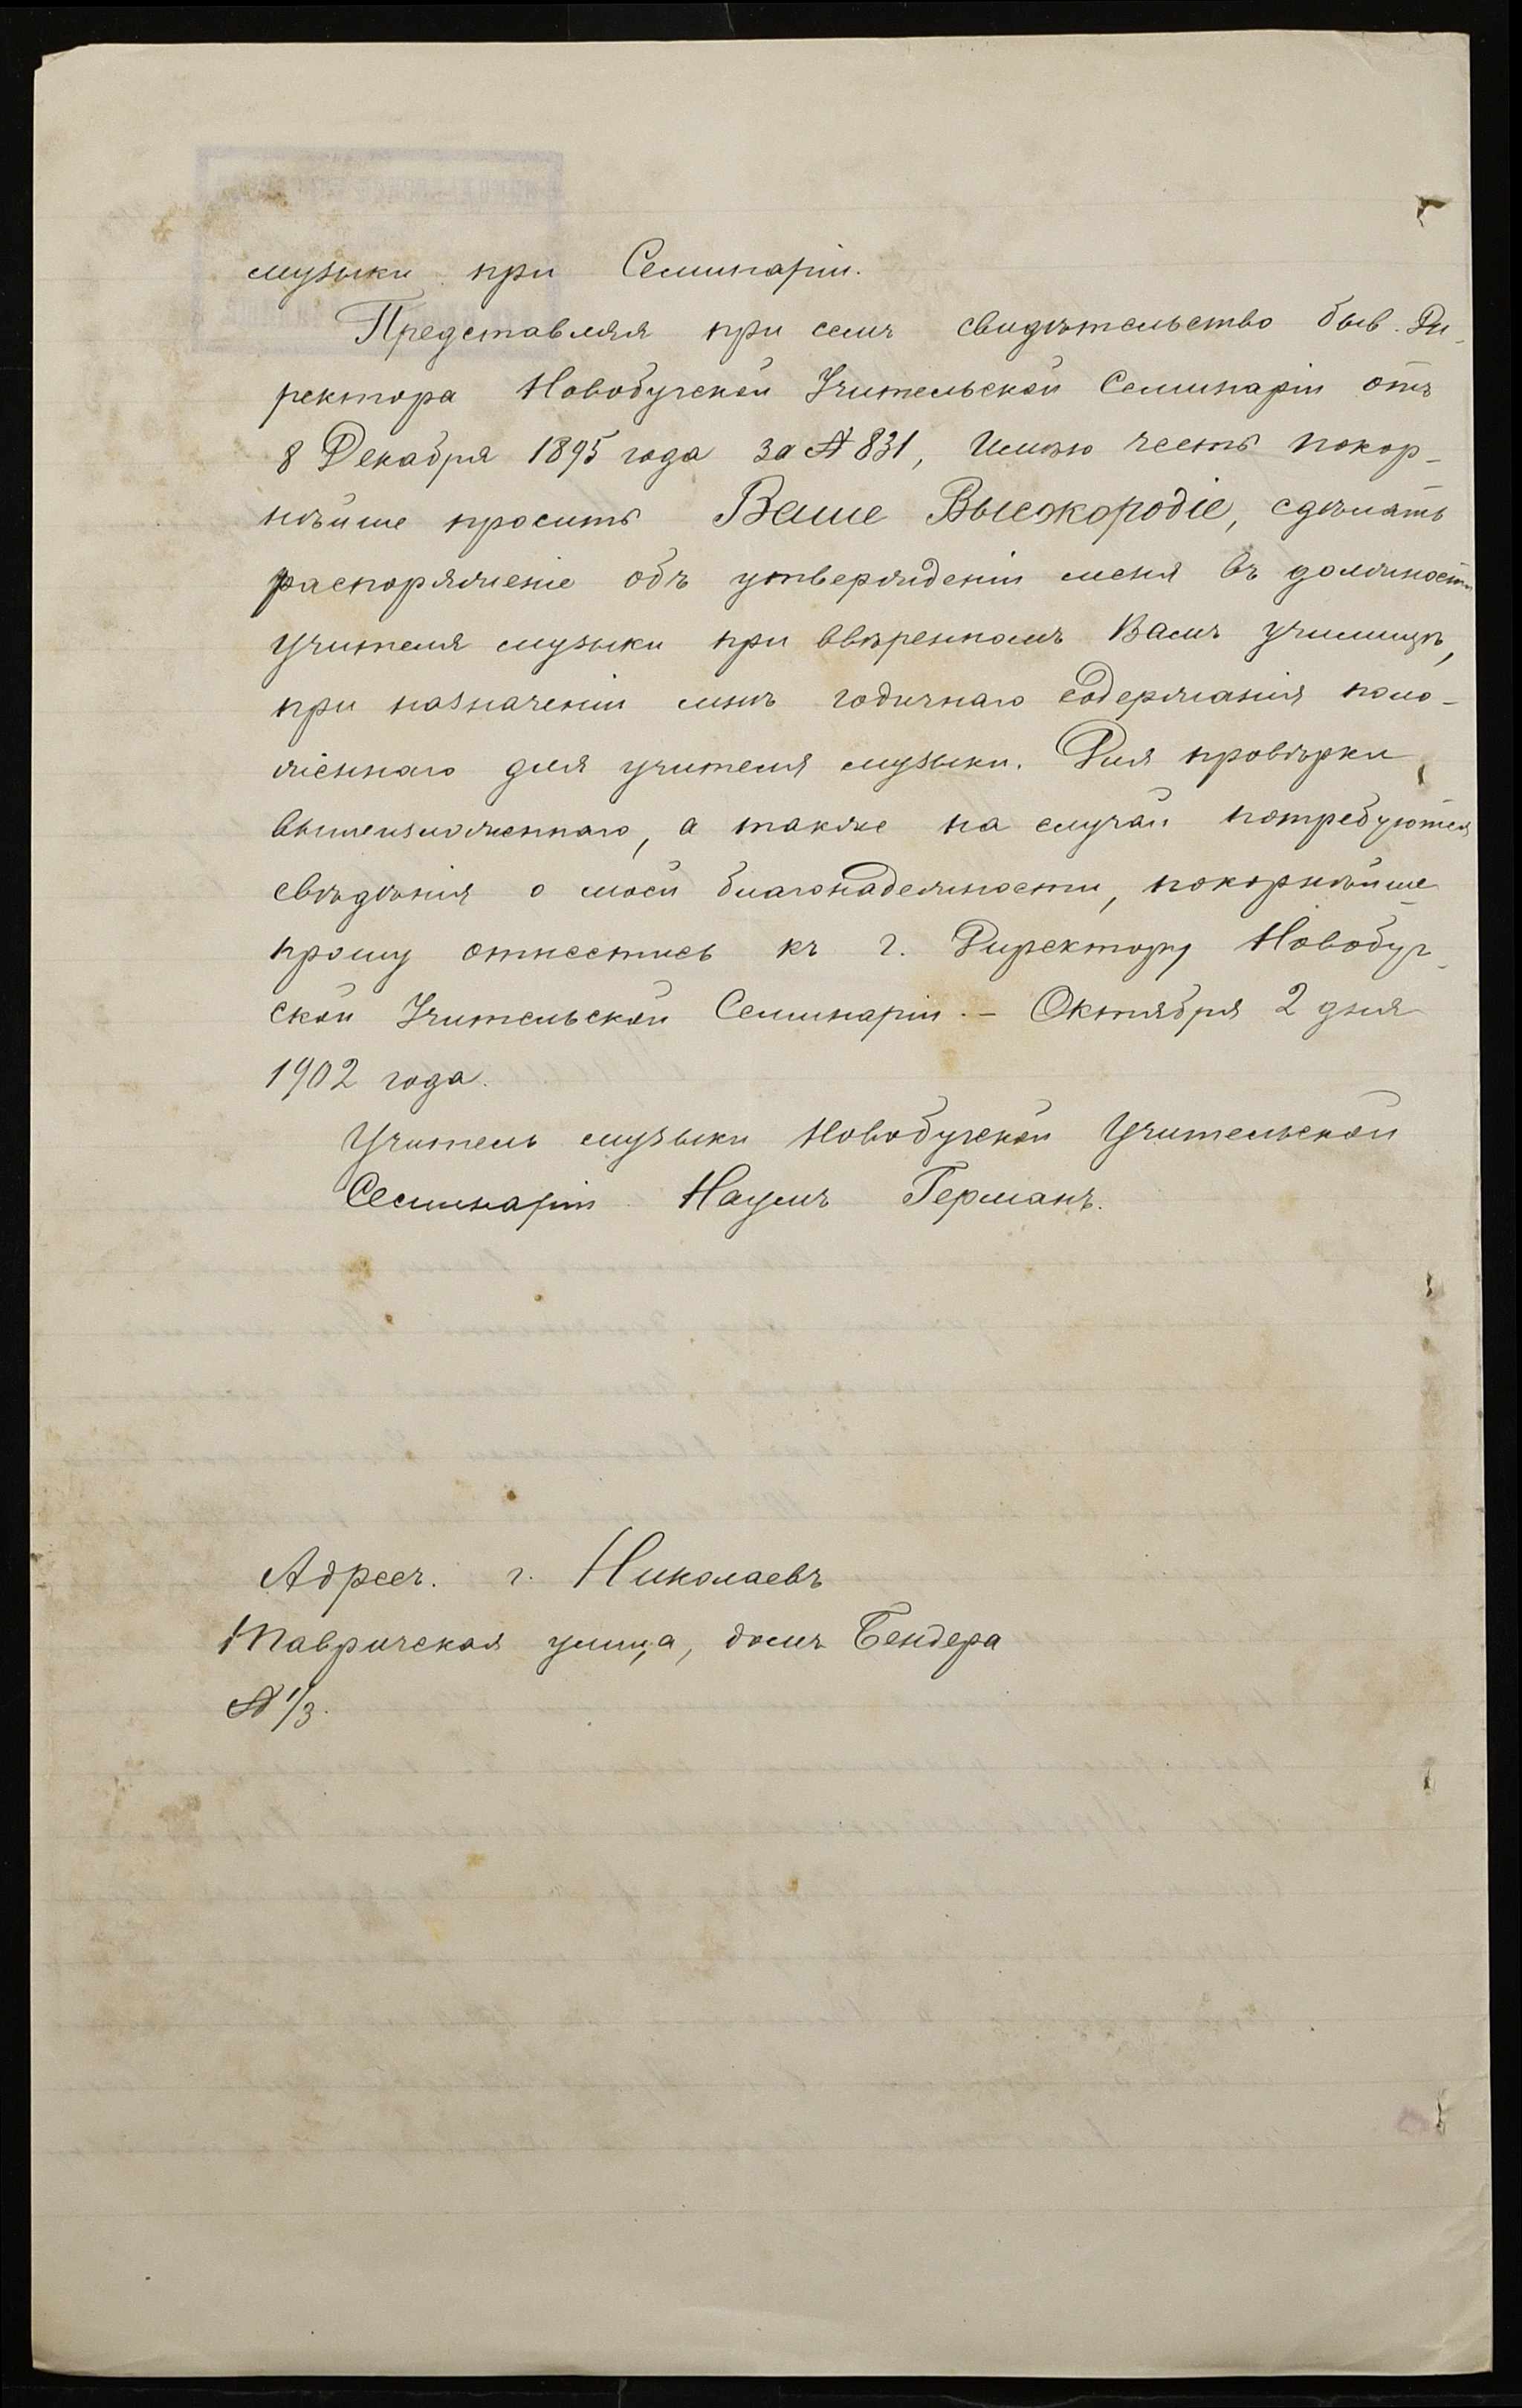 музыки при Семинаріи.
Представляя при семъ свидѣтельство быв. Ди-
ректора Новобугской Учительской Семинаріи отъ
8 Декабря 1895 года за № 831, Имѣю честь покор-
нѣйше просить Ваше Высокородіе, сдѣлать
распоряженіе объ утвержденіи меня въ должности
учителя музыки при ввѣренномъ Вамъ училищѣ,
при назначеніи мнѣ годичнаго содержанія поло-
женнаго для учителя музыки. Для провѣрки
вышеизложеннаго, а также на случай потребуются
свѣдѣнія о моей благонадежности, покорнѣйше
прошу отнестись къ г. Директору Новобуг-
ской Учительской Семинаріи. – Октября 2 дня
1902 года.
Учитель музыки Новобугской Учительской
Семинаріи Наумъ Германъ.
Адресъ. г. Николаевъ
Таврическая улица, домъ Бендера
№ 1/3.